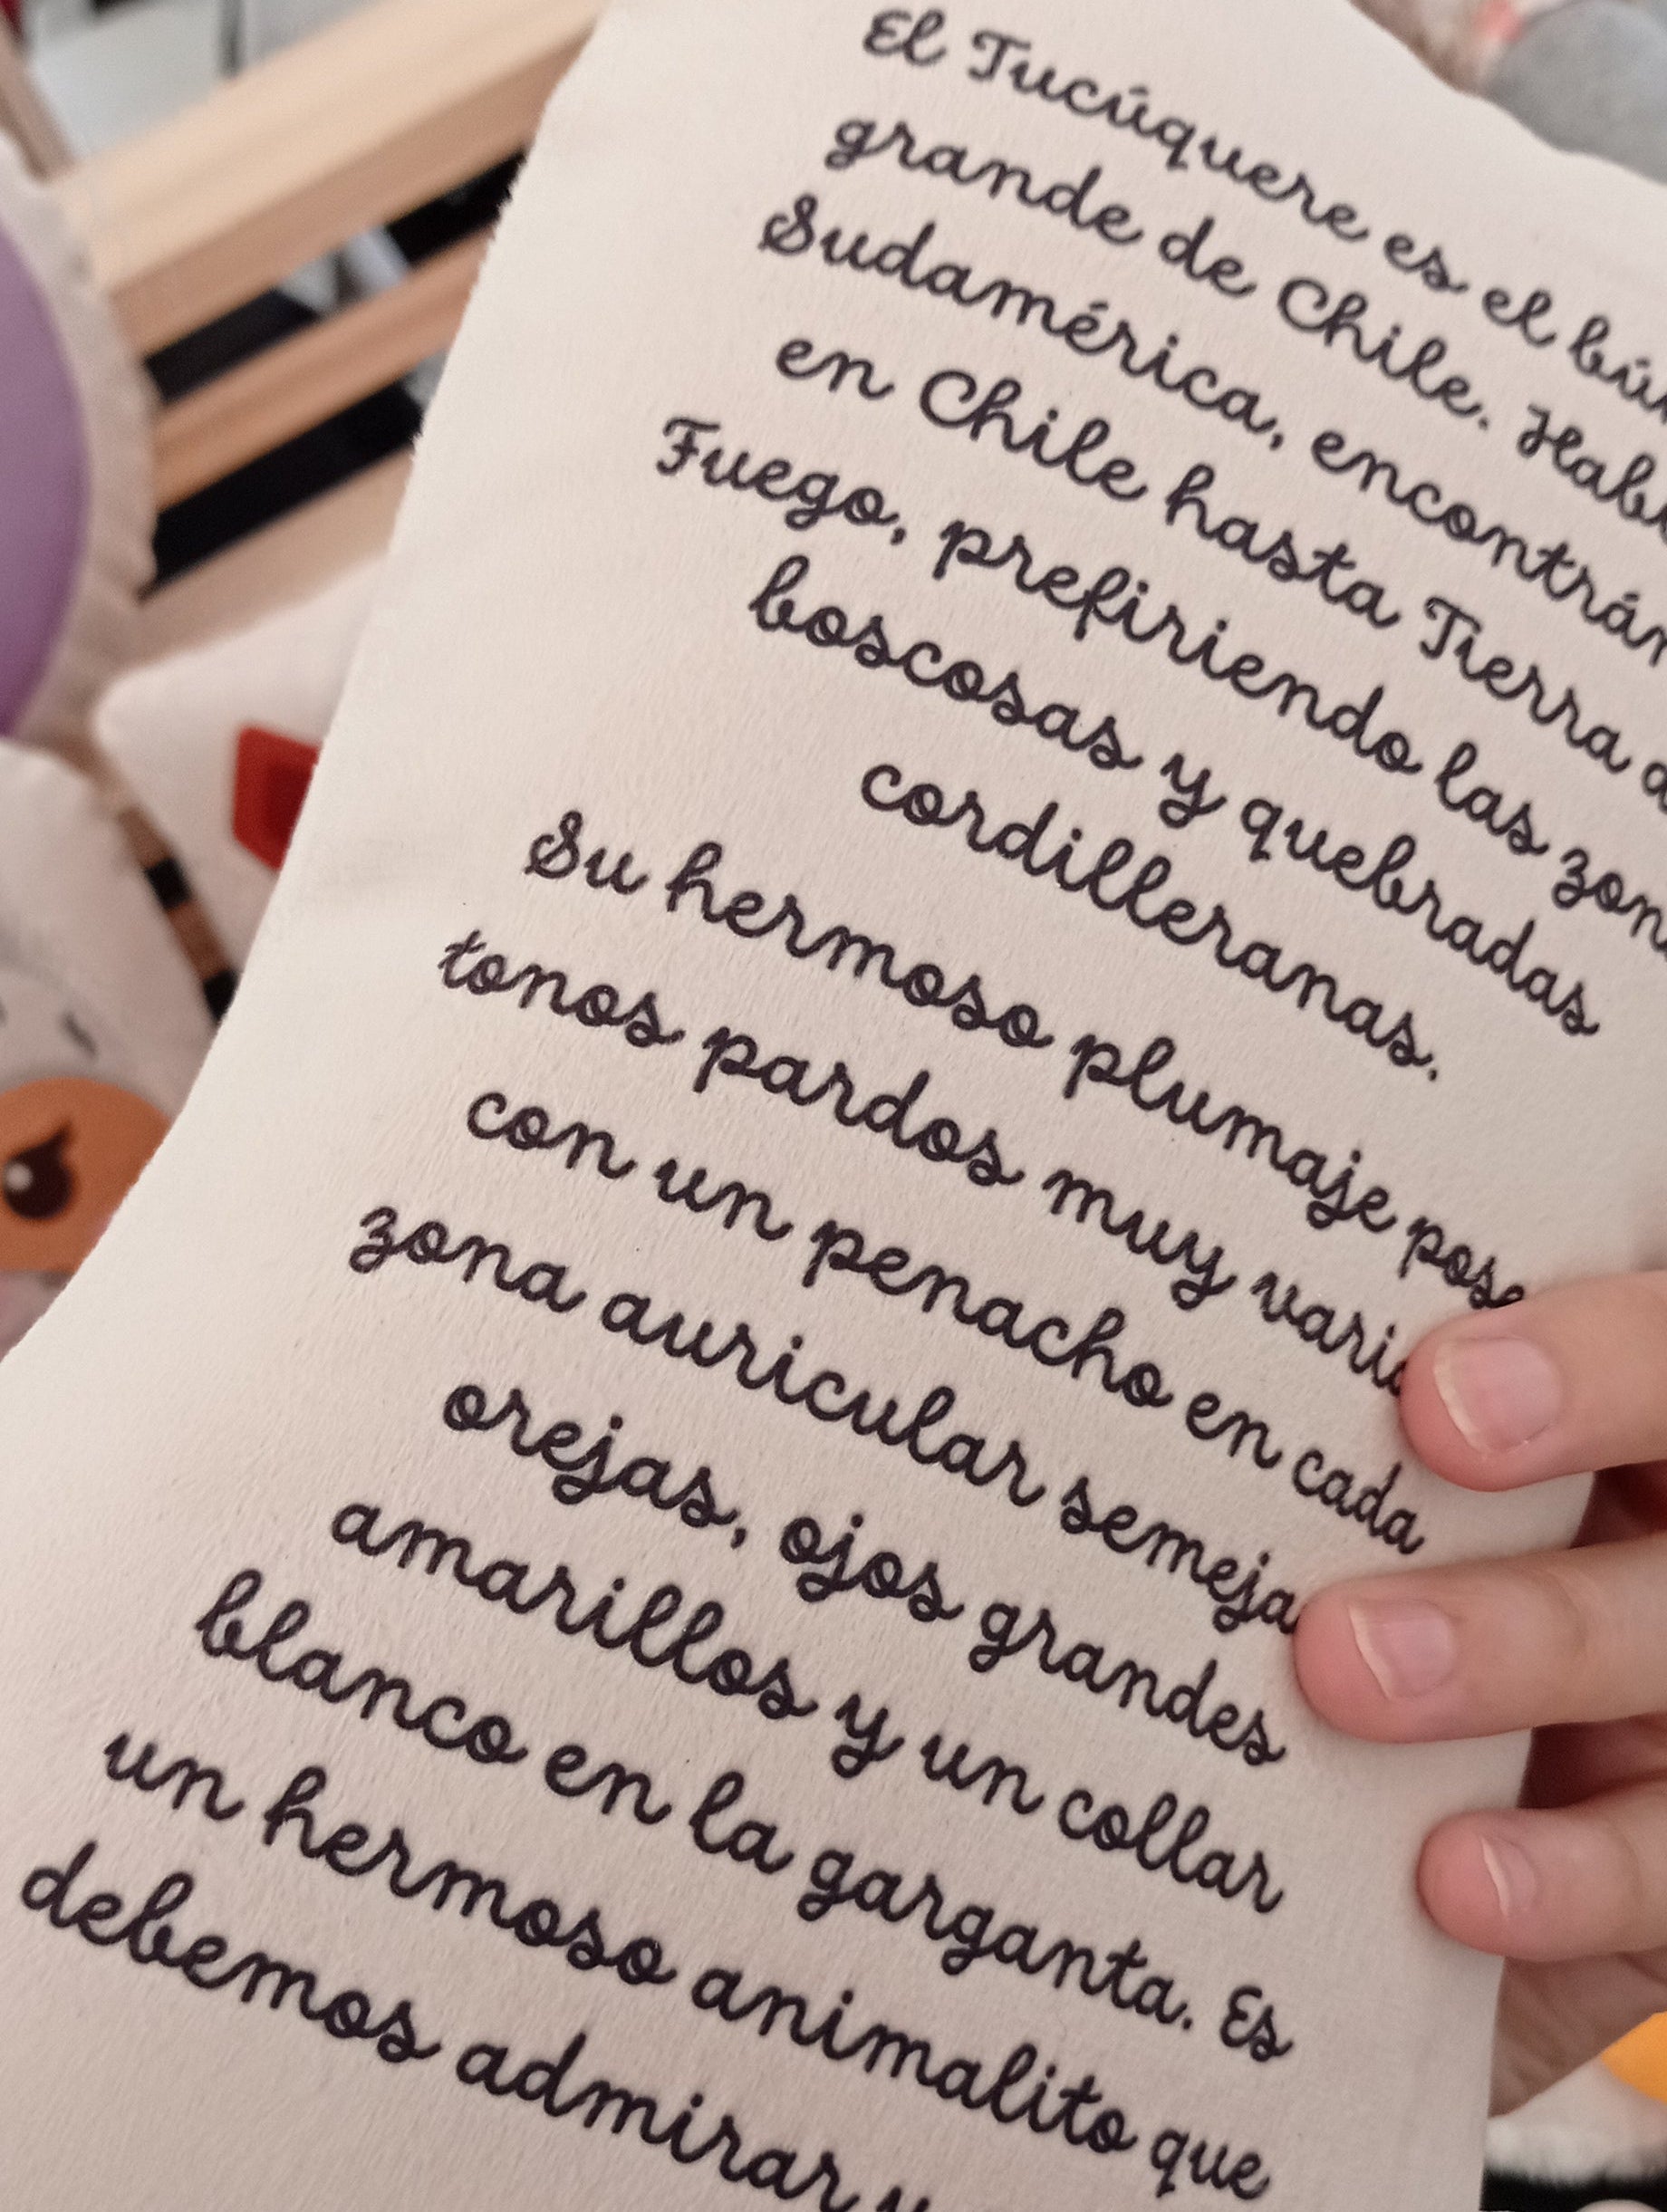 El Tucúquere es el
grande de Chile.
Sudamérica,
en Chile hasta Tierra
Fuego, prefiriendo las
boscosas y quebradas
cordilleranas.
Su hermoso plumaje
tonos pardos muy
con un penacho en cada
zona auricular
orejas, ojos grandes
amarillos y un collar
blanco en la garganta. Es
un hermoso animalito que
debemos admirar